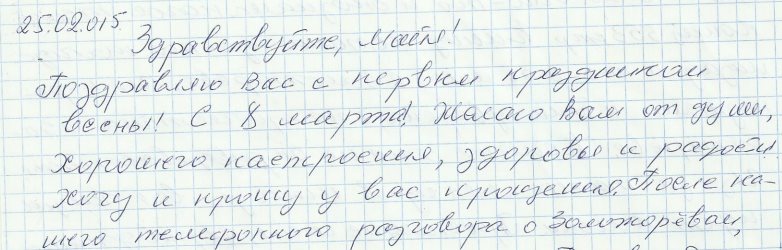 25.02.015
Здравствуйте, Майя!
Поздравляю Вас с первым праздником
весны! С 8 марта! Желаю Вам от души,
хорошего настроения, здоровья и радости
хочу и прошу у вас прощения. После на-
шего телефонного разговора о